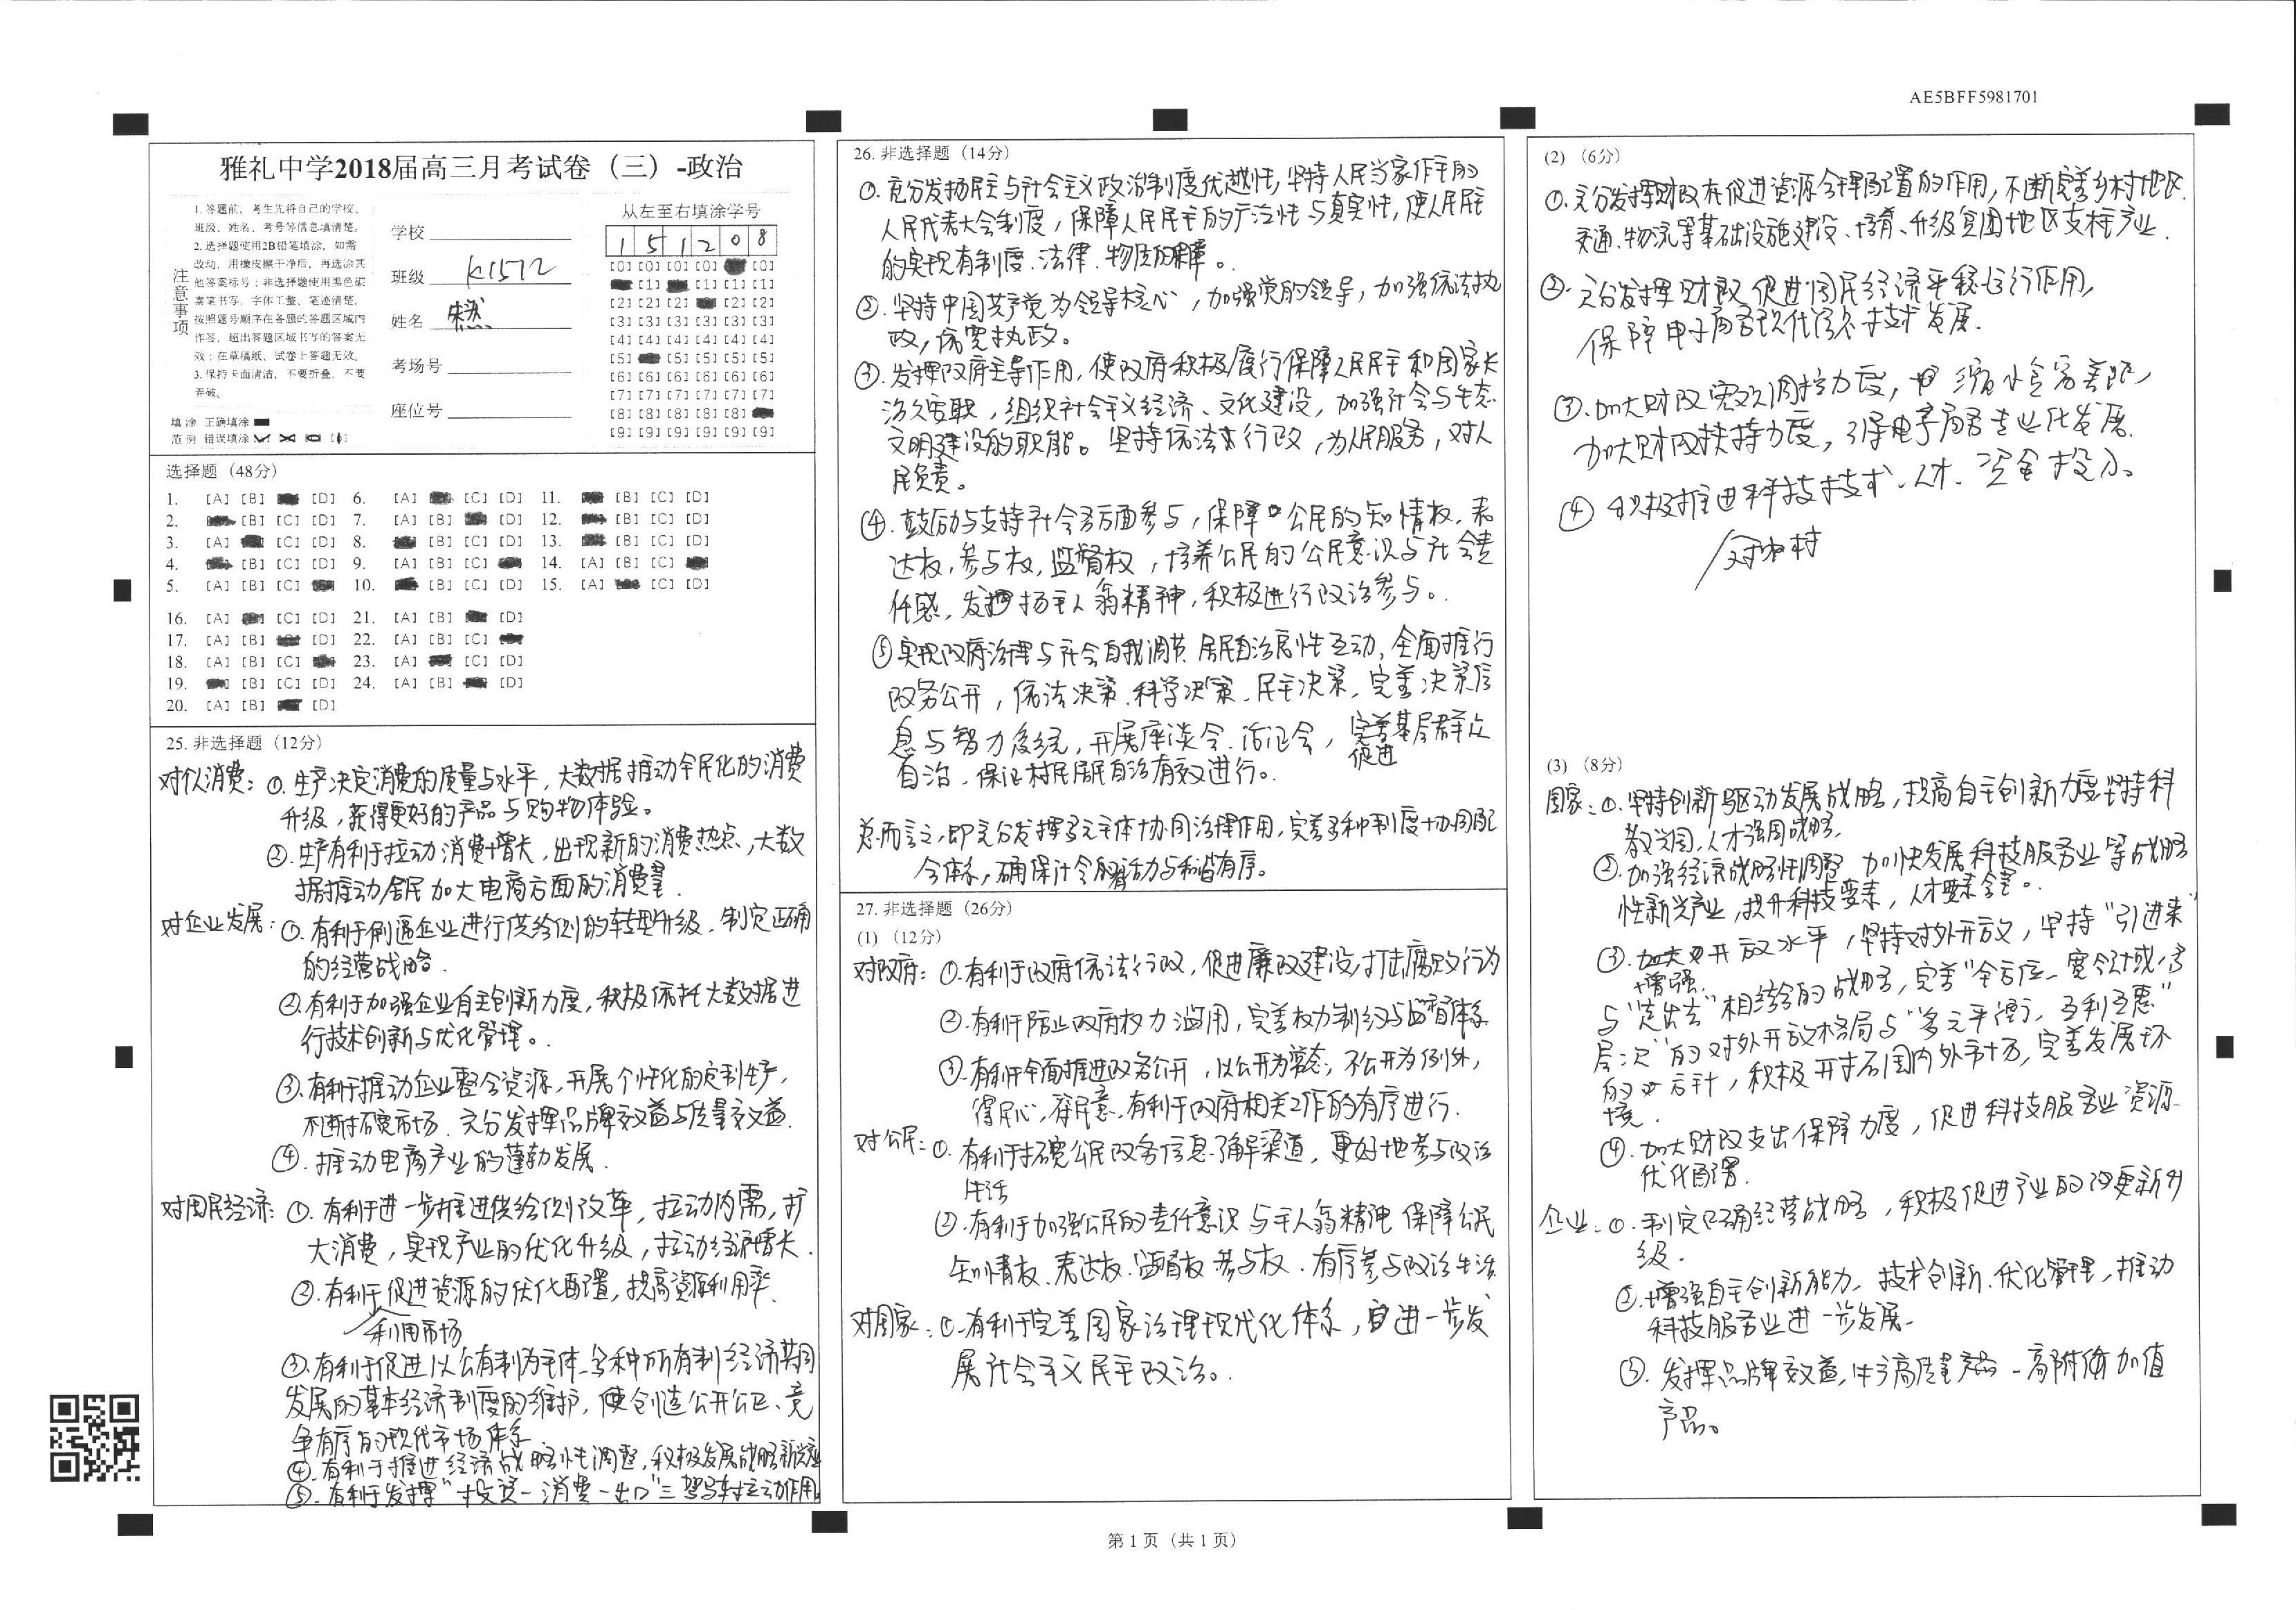 AE5BFF5981701
雅礼中学2018届高三月考试卷（三）-政治
注意事项
1. 答题前，考生先将自己的学校、
班级、姓名、考号等信息填清楚。
2. 选择题使用2B铅笔填涂，如需
改动，用橡皮擦干净后，再选涂其
他答案标号；非选择题使用黑色碳
素笔书写，字体工整、笔迹清楚，
按照题号顺序在各题的答题区域内
作答，超出答题区域书写的答案无
效；在草稿纸、试卷上答题无效。
3. 保持卡面清洁，不要折叠、不要
弄破。
填涂 正确填涂
范例 错误填涂
学校
班级 K1512
姓名
考场号
座位号
从左至右填涂学号
1 5 1 2 0 8
[0] [0] [0] [0] [0]
[1] [1] [1] [1]
[2] [2] [2] [2] [2]
[3] [3] [3] [3] [3] [3]
[4] [4] [4] [4] [4] [4]
[5] [5] [5] [5] [5]
[6] [6] [6] [6] [6] [6]
[7] [7] [7] [7] [7] [7]
[8] [8] [8] [8] [8]
[9] [9] [9] [9] [9] [9]
选择题（48分）
1. [A] [B] [D] 6. [A] [C] [D] 11. [B] [C] [D]
2. [B] [C] [D] 7. [A] [B] [D] 12. [B] [C] [D]
3. [A] [C] [D] 8. [B] [C] [D] 13. [B] [C] [D]
4. [B] [C] [D] 9. [A] [B] [C] 14. [A] [B] [C]
5. [A] [B] [C] 10. [B] [C] [D] 15. [A] [C] [D]
16. [A] [C] [D] 21. [A] [B] [D]
17. [A] [B] [D] 22. [A] [B] [C]
18. [A] [B] [C] 23. [A] [C] [D]
19. [B] [C] [D] 24. [A] [B] [D]
20. [A] [B] [D]
25. 非选择题（12分）
对消费：①.生产决定消费的质量与水平，大数据推动个性化的消费
升级，获得更好的产品与购物体验。
②.生产有利于拉动消费增长，出现新的消费热点，大数
据推动居民加大电商方面的消费量．
对企业发展：①.有利于倒逼企业进行供给侧的转型升级．制定正确
的经营战略．
②有利于加强企业自主创新力度，积极依托大数据进
行技术创新与优化管理。
③.有利于推动企业整合资源，开展个性化的定制生产，
不断拓宽市场、充分发挥品牌效益与质量效益．
④.推动电商产业的蓬勃发展．
对国民经济：①.有利于进一步推进供给侧改革，拉动内需，扩
大消费，实现产业的优化升级，拉动经济增长．
②.有利于促进资源的优化配置，提高资源利用率．
利用市场
③.有利于促进以公有制为主体、多种所有制经济共同
发展的基本经济制度的维护，使创造公开公正、竞
争有序的现代市场体系．
④.有利于推进经济战略性调整，积极发展战略新兴产业
⑤.有利于发挥“投资－消费－出口”三驾马车拉动作用。
26. 非选择题（14分）
①.充分发扬民主与社会主义政治制度优越性，坚持人民当家作主的
人民代表大会制度，保障人民民主的广泛性与真实性，使人民民主
的实现有制度、法律、物质的保障。
②.坚持中国共产党为领导核心，加强党的领导，加强依法执
政，依宪执政。
③.发挥政府主导作用，使政府积极履行保障人民民主和国家长
治久安职，组织社会主义经济、文化建设，加强社会与生态
文明建设的职能。坚持依法行政，为人民服务，对人
民负责。
④.鼓励与支持社会各方面参与，保障公民的知情权、表
达权、参与权、监督权，培养公民的公民意识与社会责
任感，发扬主人翁精神，积极进行政治参与。
⑤实现政府治理与社会自我调节、居民自治良性互动，全面推行
政务公开，依法决策、科学决策、民主决策，完善决策信
息与智力系统，开展座谈会、论证会，完善基层群众
促进
自治，保证村民居民自治有效进行。
总而言之，即充分发挥多元主体协同治理作用，完善多种制度协同配
合体系，确保社会的活力与和谐有序。
27. 非选择题（26分）
(1)（12分）
对政府：①.有利于政府依法行政，促进廉政建设，打击腐败行为
②.有利于防止政府权力滥用，完善权力制约与监督体系
③.有利于全面推进政务公开，以公开为常态，不公开为例外，
得民心，符民意，有利于政府相关工作的有序进行．
对公民：①.有利于拓宽公民政务信息了解渠道，更好地参与政治
生活
②.有利于加强公民的责任意识与主人翁精神，保障公民
知情权、表达权、监督权、参与权．有序参与政治生活．
对国家：①.有利于完善国家治理现代化体系，进一步发
展社会主义民主政治。
(2)（6分）
①.充分发挥财政在促进资源合理配置的作用，不断完善乡村地区
交通、物流等基础设施建设、培育、升级贫困地区支柱产业．
②.充分发挥财政促进国民经济平稳运行作用，
保障电子商务现代信息技术发展．
③.加大财政宏观调控力度，缩小贫富差距，
加大财政扶持力度，引导电子商务专业化发展．
④积极推进科技技术、人才、资金投入。
对农村
(3)（8分）
国家：①.坚持创新驱动发展战略，提高自主创新力度，坚持科
教兴国，人才强国战略．
②.加强经济战略性调整，加快发展科技服务业等战略
性新兴产业，提升科技要素，人才要素含量。
③.加大开放水平，坚持对外开放，坚持“引进来”
增强
与“走出去”相结合的战略，完善“全方位、宽领域、多
层次”的对外开放格局与“多元平衡，互利互惠”
的方针，积极开拓国内外市场，完善发展环
境．
④.加大财政支出保障力度，促进科技服务业资源
优化配置．
企业：①.制定正确经营战略，积极促进产业的更新升
级．
②.增强自主创新能力，技术创新、优化管理，推动
科技服务业进一步发展．
③.发挥品牌效益，生产高质量产品－高附加值
产品。
第 1 页（共 1 页）